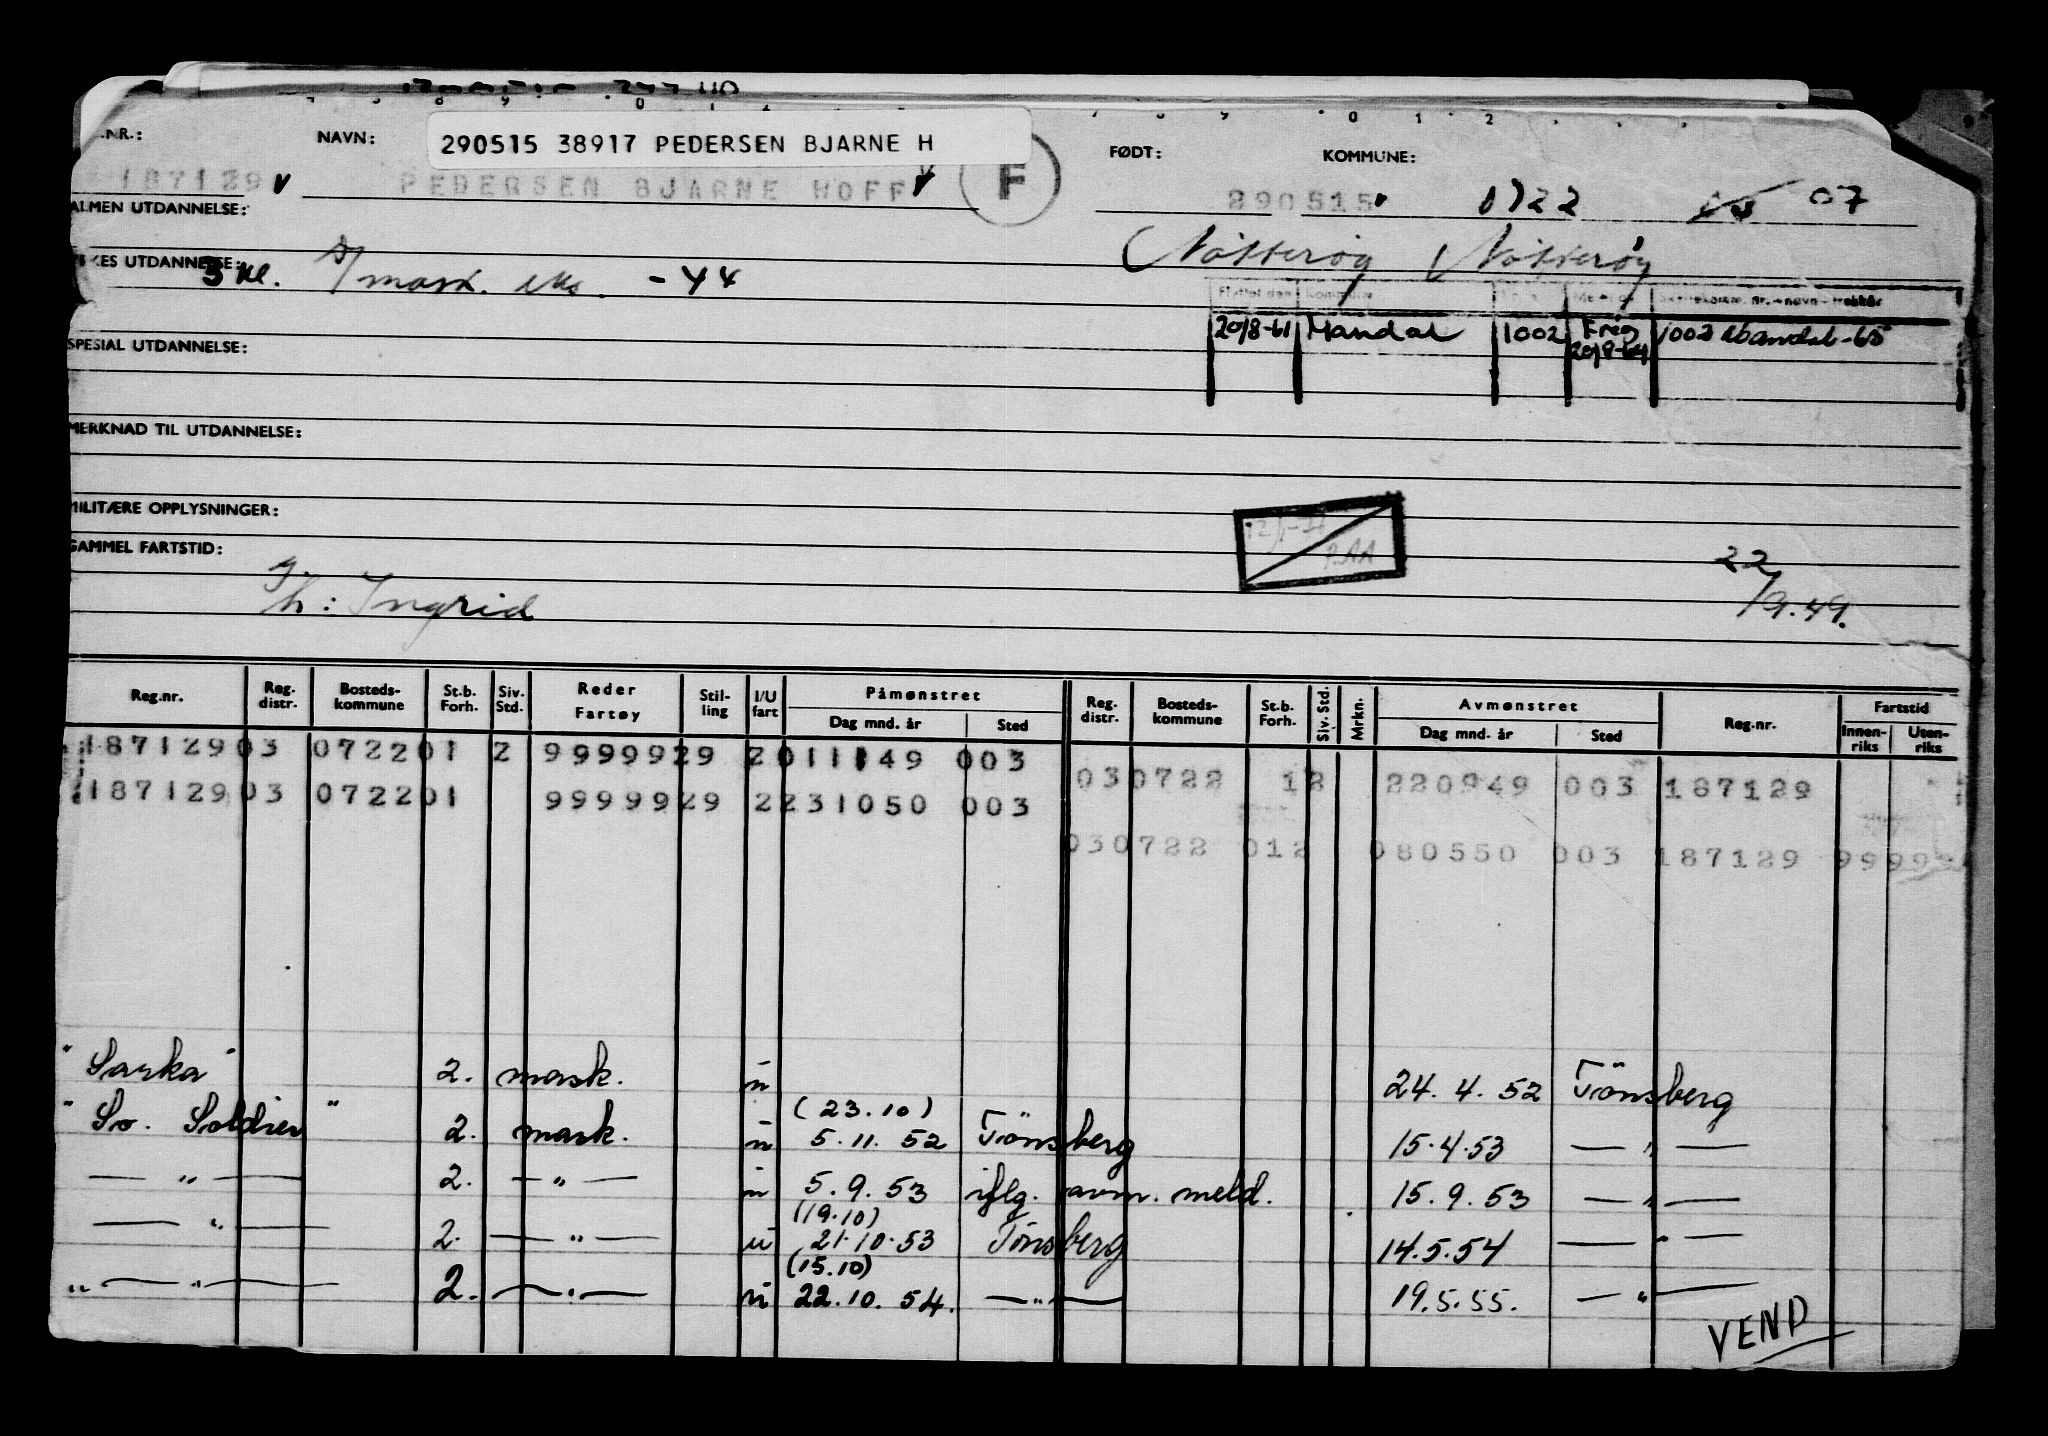 .NR.: NAVN: 290515 38917 PEDERSEN BJARNE H FØDT: KOMMUNE:
187129 PEDERSEN BJARNE HOFF F 290515 0722 07
ALMEN UTDANNELSE:
Nøtterøy Nøtterøy
KES UTDANNELSE: 3 kl. mask. eks. - 44
Flyttet den Kommune
20/8-61 Mandal 1002 Freg 20/8-64 1002 Mandal -65
SPESIAL UTDANNELSE:
MERKNAD TIL UTDANNELSE:
MILITÆRE OPPLYSNINGER:
GAMMEL FARTSTID:
22/9.49.
h: Ingrid
Reg.nr. Reg. distr. Bosteds- kommune St.b. Forh. Siv. Std. Reder Fartøy Stil- ling I/U fart Påmønstret Dag mnd. år Sted Reg. distr. Bosteds- kommune St.b. Forh. Siv. Std. Mrkn. Avmønstret Dag mnd. år Sted Reg.nr. Fartstid Innen- riks Uten- riks
187129 03 0722 01 2 99999 29 2 011149 003
030722 12 220949 003 187129
187129 03 0722 01 99999 29 2 231050 003
030722 012 080550 003 187129 9999
"Sarka" 2. mask. u 24. 4. 52 Tönsberg
(23.10)
"So. Soldier" 2. mask. u 5. 11. 52 Tönsberg 15.4.53 — " —
— " — 2. — " — u 5. 9. 53 iflg. avm. meld. 15. 9. 53 — " —
(19.10)
— " — 2. — " — u 21.10.53 Tönsberg 14.5.54 — " —
(15.10)
— " — 2. — " — u 22.10.54. — " — 19.5.55. — " —
VEND